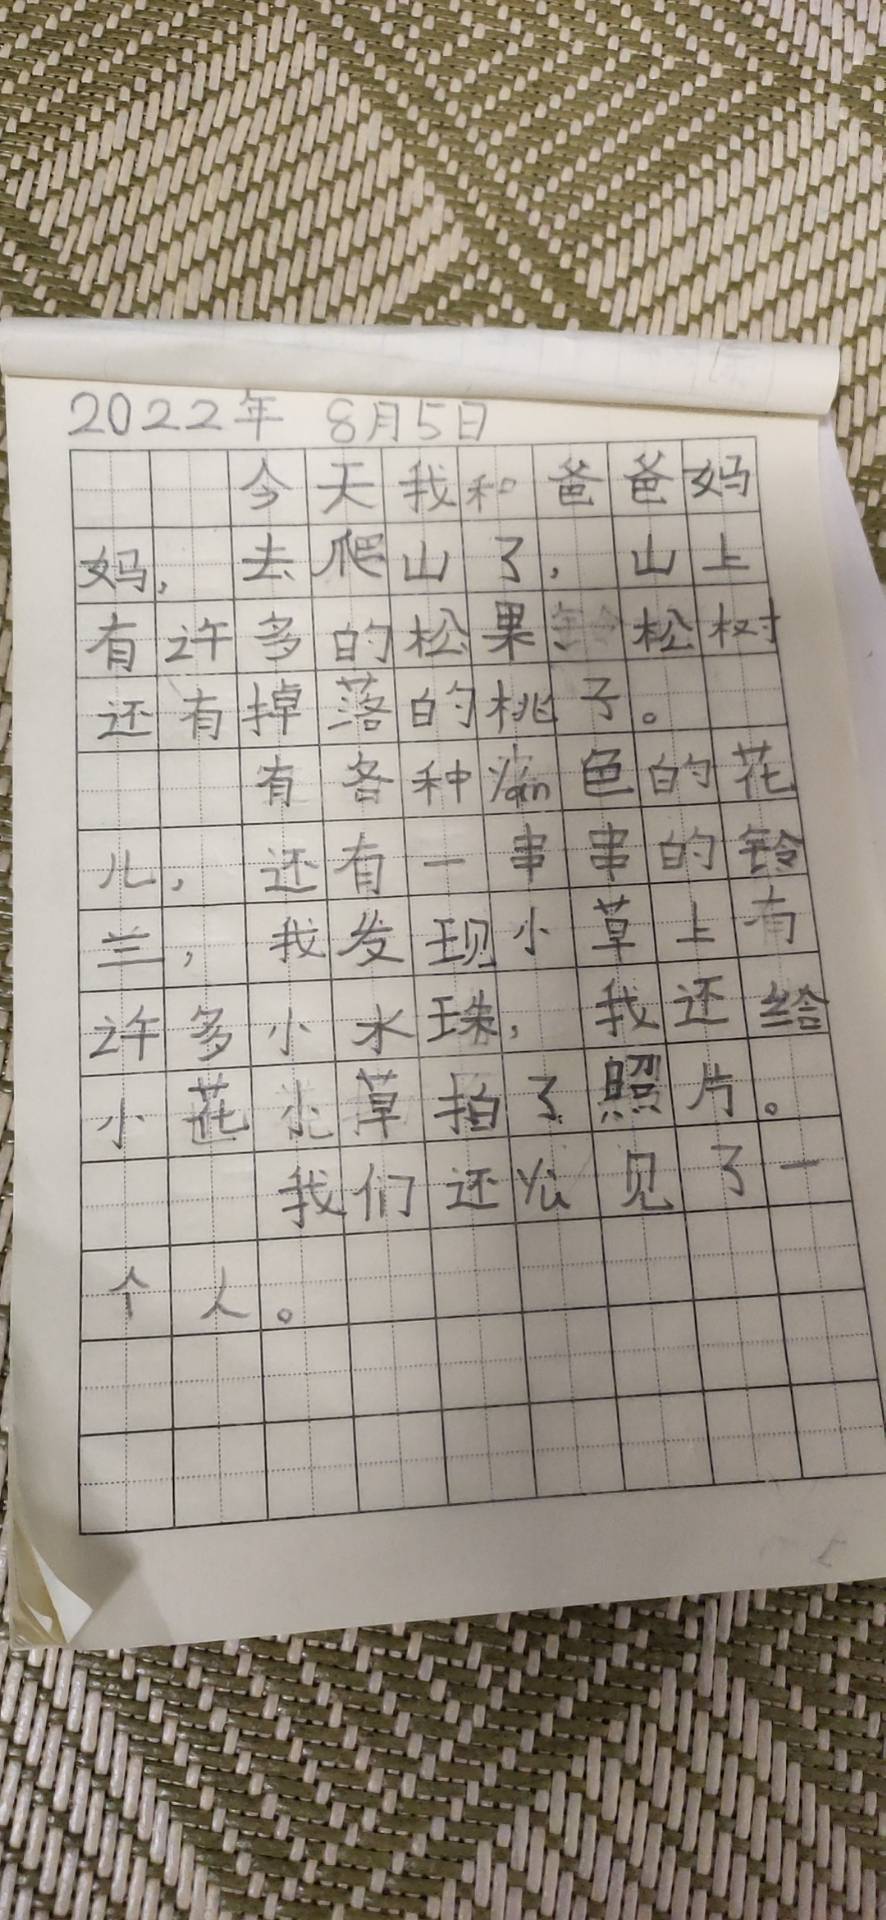 2022年 8月5日
今天我和爸爸妈
妈，去爬山了，山上
有许多的松果 松树
还有掉落的桃子。
有各种yán色的花
儿，还有一串串的铃
兰，我发现小草上有
许多小水珠，我还给
小花小草拍了照片。
我们还yù见了一
个人。